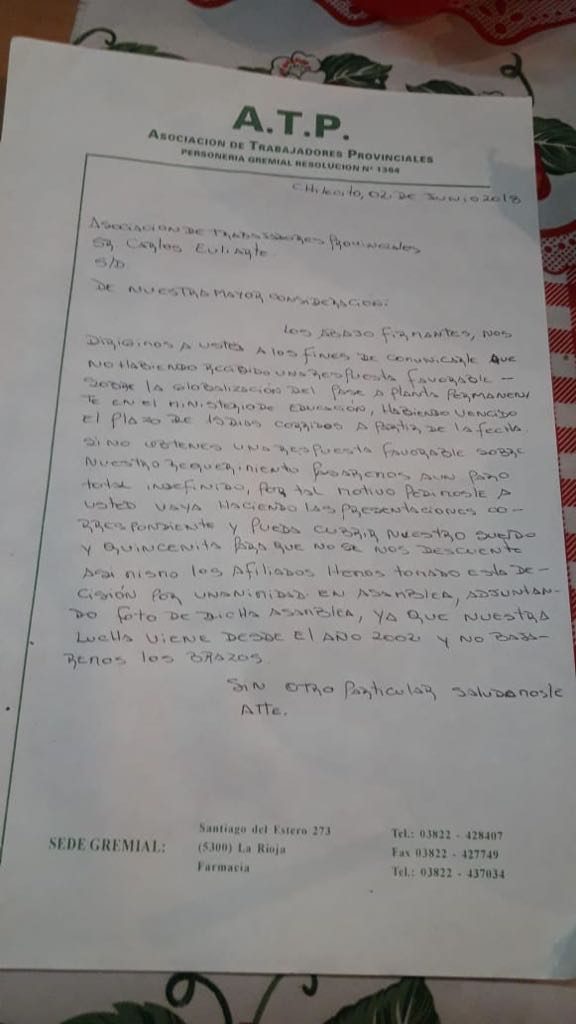 A.T.P.
ASOCIACION DE TRABAJADORES PROVINCIALES
PERSONERIA GREMIAL RESOLUCION Nº 1364
CHILECITO, 02 DE JUNIO 2018
ASOCIACION DE TRABAJADORES PROVINCIALES
SR CARLOS EULIARTE
S/D.
DE NUESTRA MAYOR CONSIDERACION:
LOS ABAJO FIRMANTES, NOS
DIRIGIMOS A USTED A LOS FINES DE COMUNICARLE QUE
NO HABIENDO RECIBIDO UNA RESPUESTA FAVORABLE -
SOBRE LA GLOBALIZACIÓN DEL PASE A PLANTA PERMANEN
TE EN EL MINISTERIO DE EDUCACIÓN, HABIENDO VENCIDO
EL PLAZO DE 15 DIAS CORRIDOS A PARTIR DE LA FECHA.
SI NO OBTENES UNA RESPUESTA FAVORABLE SOBRE
NUESTRO REQUERIMIENTO PASAREMOS A UN PARO
TOTAL INDEFINIDO, POR TAL MOTIVO PEDIMOSLE A
USTED VAYA HACIENDO LAS PRESENTACIONES CO-
RRESPONDIENTE Y PUEDA CUBRIR NUESTRO SUELDO
Y QUINCENITA PARA QUE NO SE NOS DESCUENTE
ASI MISMO LOS AFILIADOS HEMOS TOMADO ESTA DE-
CISIÓN POR UNANIMIDAD EN ASAMBLEA, ADJUNTAN-
DO FOTO DE DICHA ASAMBLEA, YA QUE NUESTRA
LUCHA VIENE DESDE EL AÑO 2002 Y NO BAJA-
REMOS LOS BRAZOS.
SIN OTRO PARTICULAR SALUDAMOSLE
ATTE.
SEDE GREMIAL:
Santiago del Estero 273
(5300) La Rioja
Farmacia
Tel.: 03822 - 428407
Fax 03822 - 427749
Tel.: 03822 - 437034